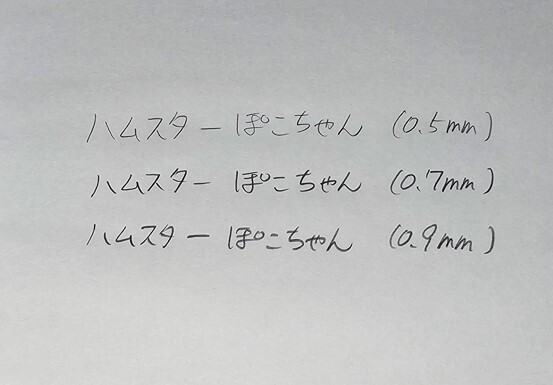 ハムスターぽこちゃん (0.5mm)
ハムスターぽこちゃん (0.7mm)
ハムスターぽこちゃん (0.9mm)